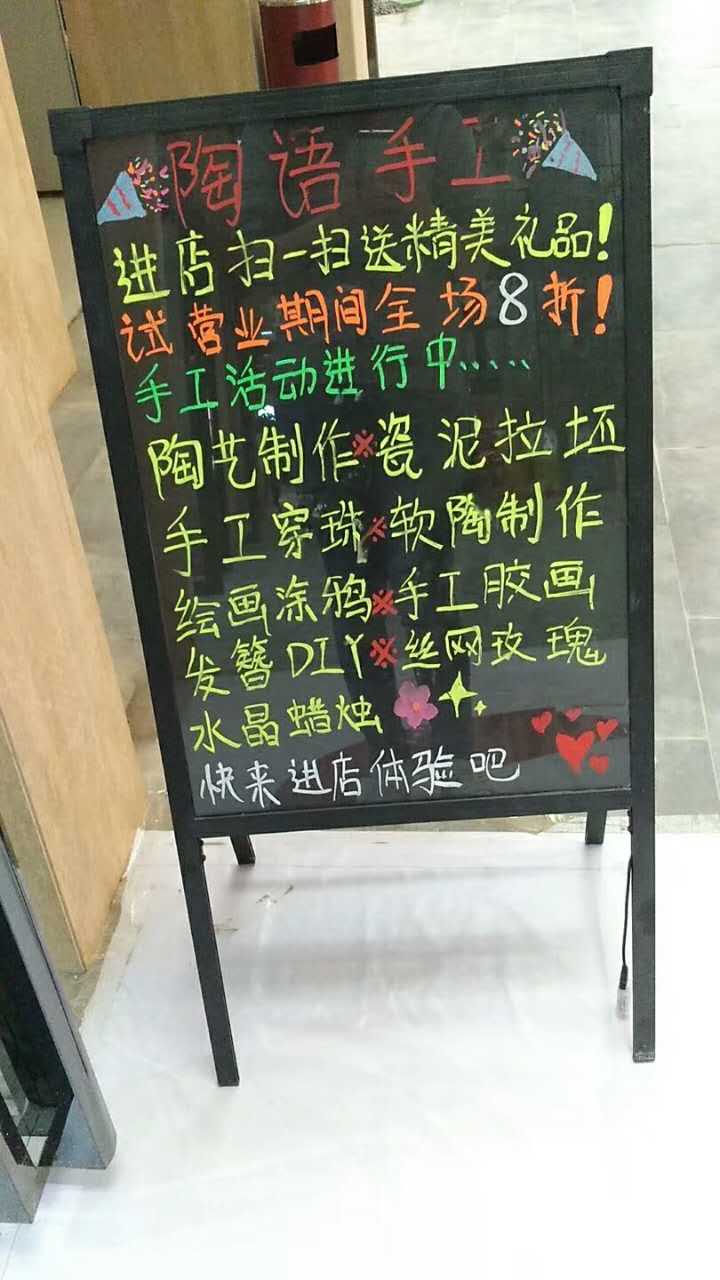 陶语手工
进店扫一扫送精美礼品!
试营业期间全场8折!
手工活动进行中.....
陶艺制作※瓷泥拉坯
手工穿珠※软陶制作
绘画涂鸦※手工胶画
发簪DIY※丝网玫瑰
水晶蜡烛
快来进店体验吧